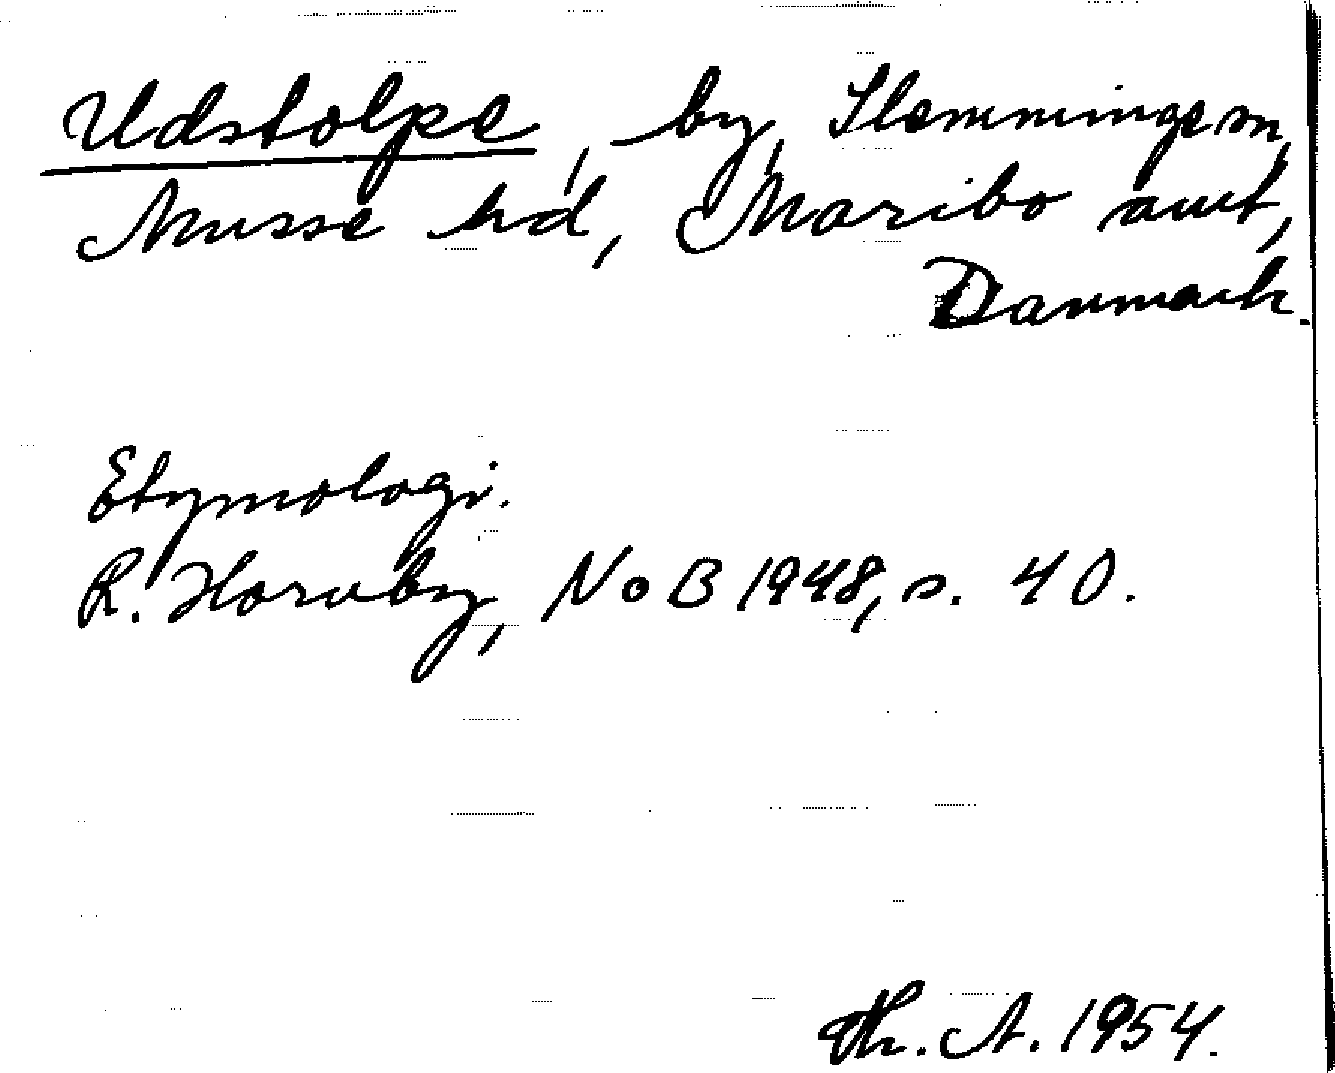 Udstolpe, by, Slemminge sn,
Musse hd, Maribo amt,
Danmark.
Etymologi.
R. Hornby, NoB 1948, s. 40.
Th. A. 1954.